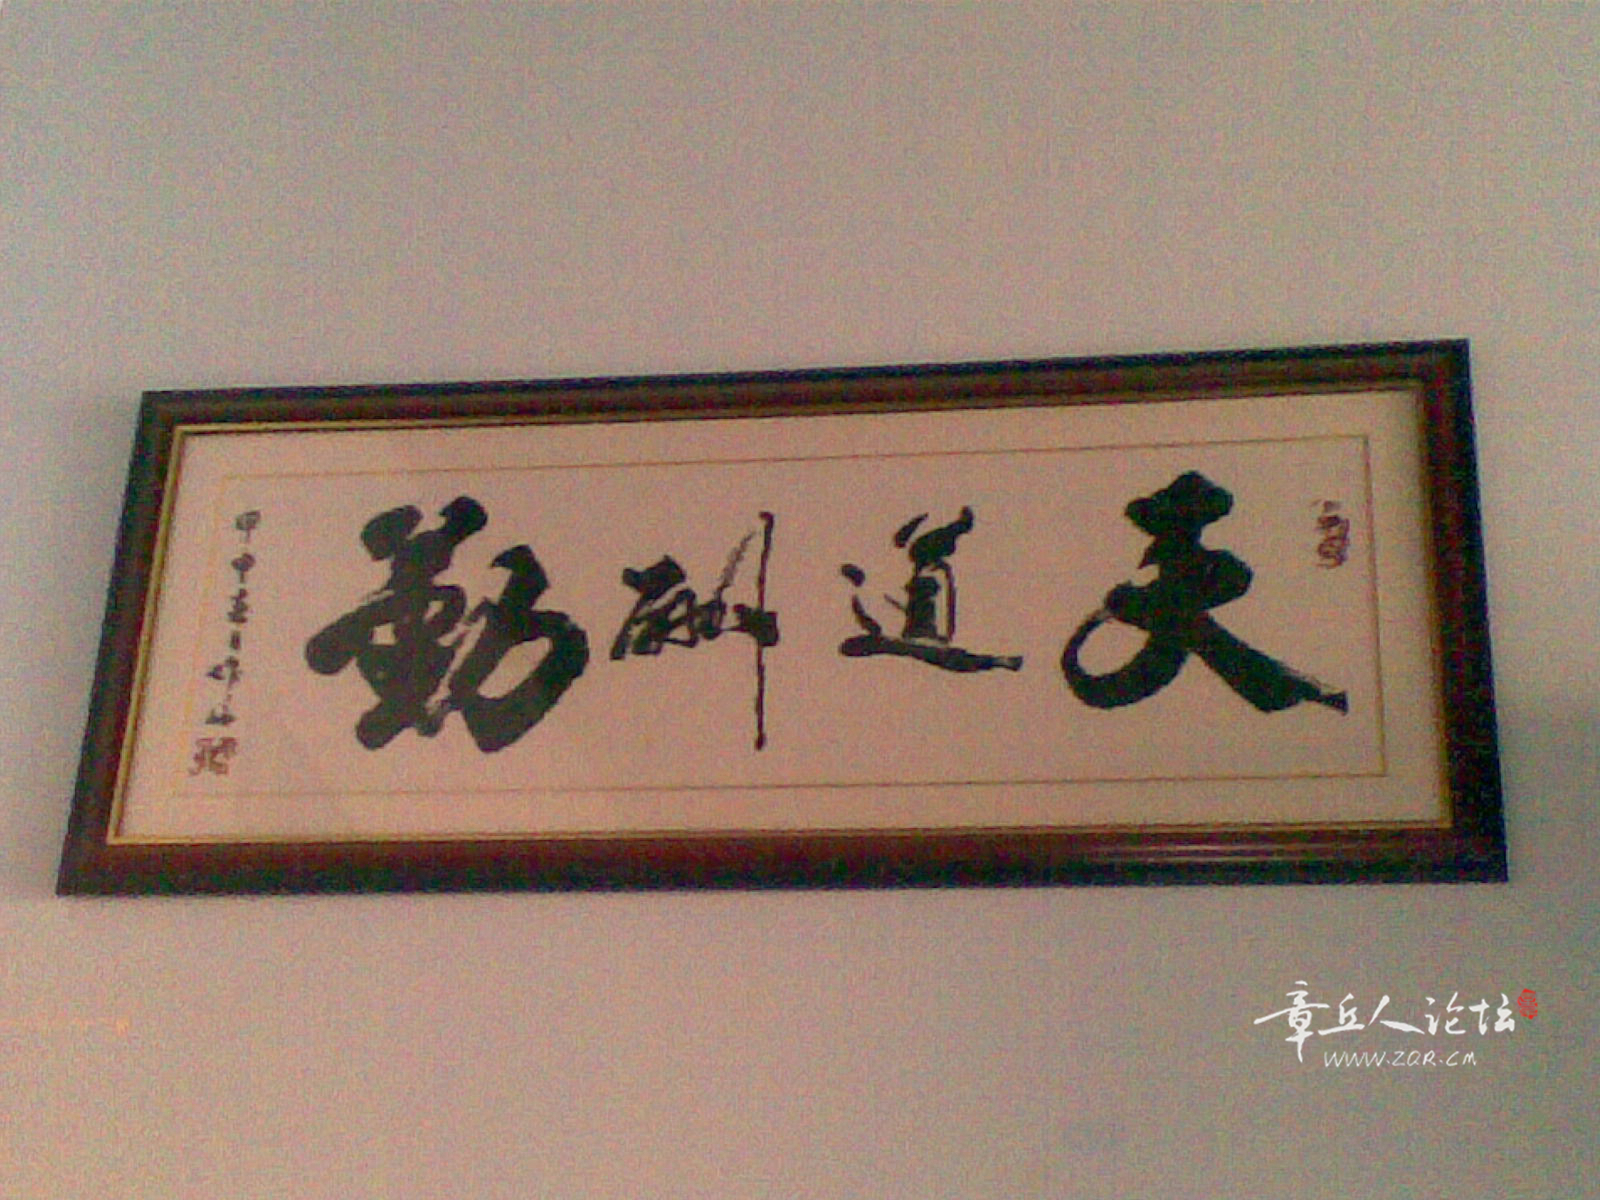 天道酬勤
章丘人论坛
WWW.ZQR.CM